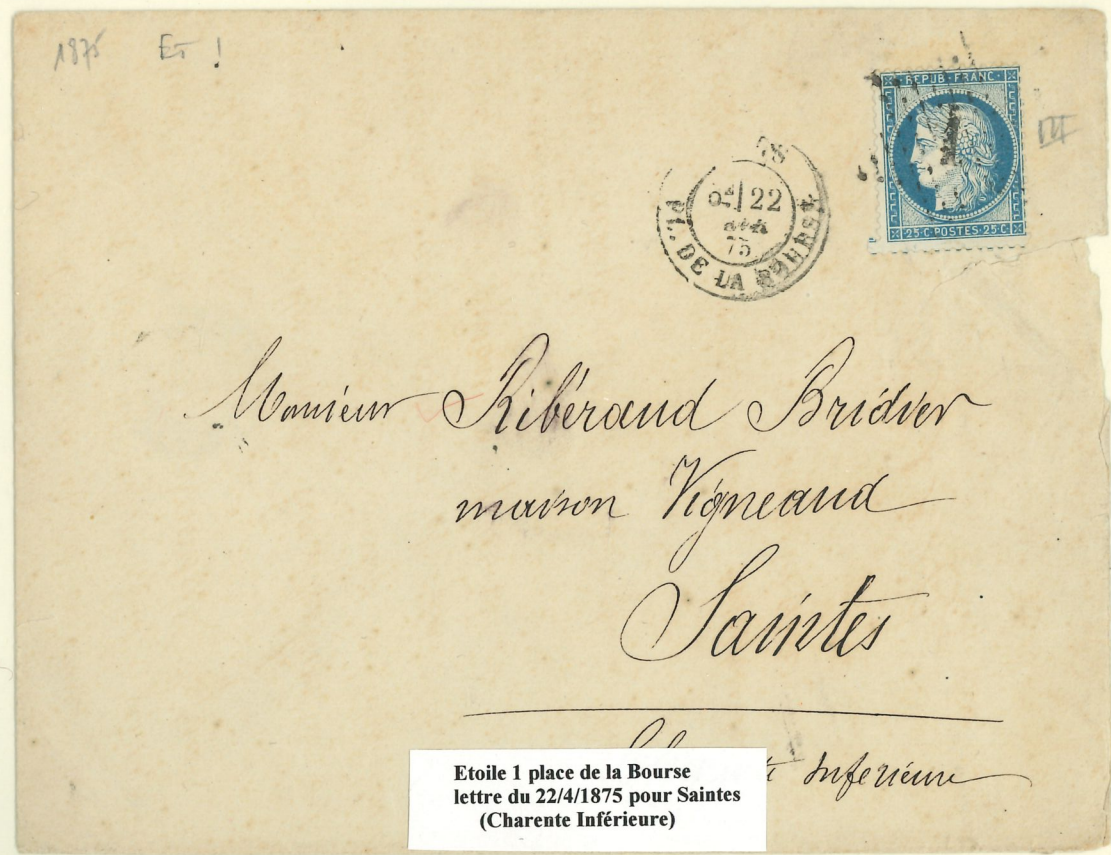 1875 ET !
REPUB · FRANC
1
III
25·C·POSTES·25·C
22
75
PL. DE LA BOURSE
Monsieur Ribéraud Bridier
maison Vigneaud
Saintes
Inferieure
Etoile 1 place de la Bourse
lettre du 22/4/1875 pour Saintes
(Charente Inférieure)